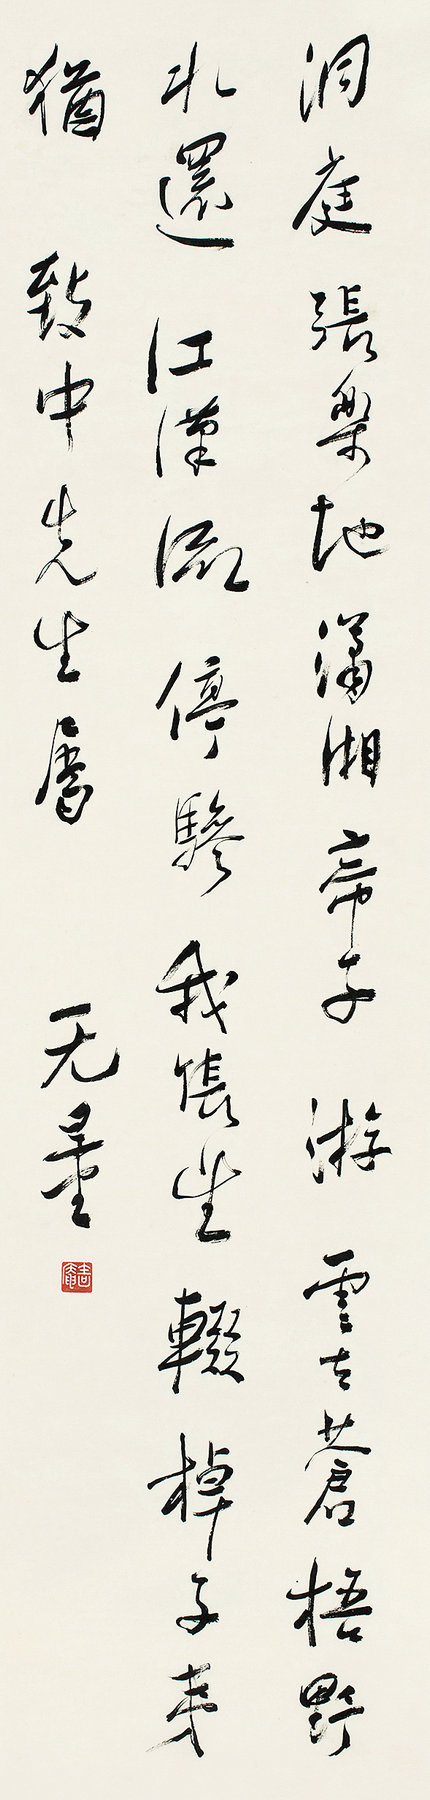 洞庭張樂地瀟湘帝子游雲去蒼梧野
水還江漢流停驂我悵望輟棹子夷
猶 致中先生屬 无量